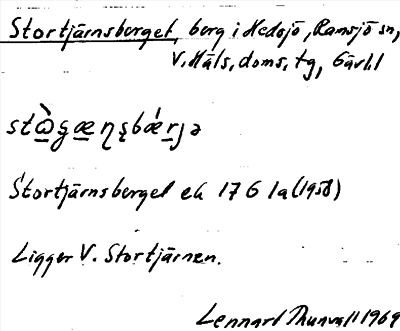 Stortjärnsberget, berg i Hedsjö, Ramsjö sn,
V. Häls. doms. tg, Gävl. l
Stortjärnsberget ek 17 G 1a (1958)
Ligger V. Stortjärnen.
Lennart Thunvall 1969